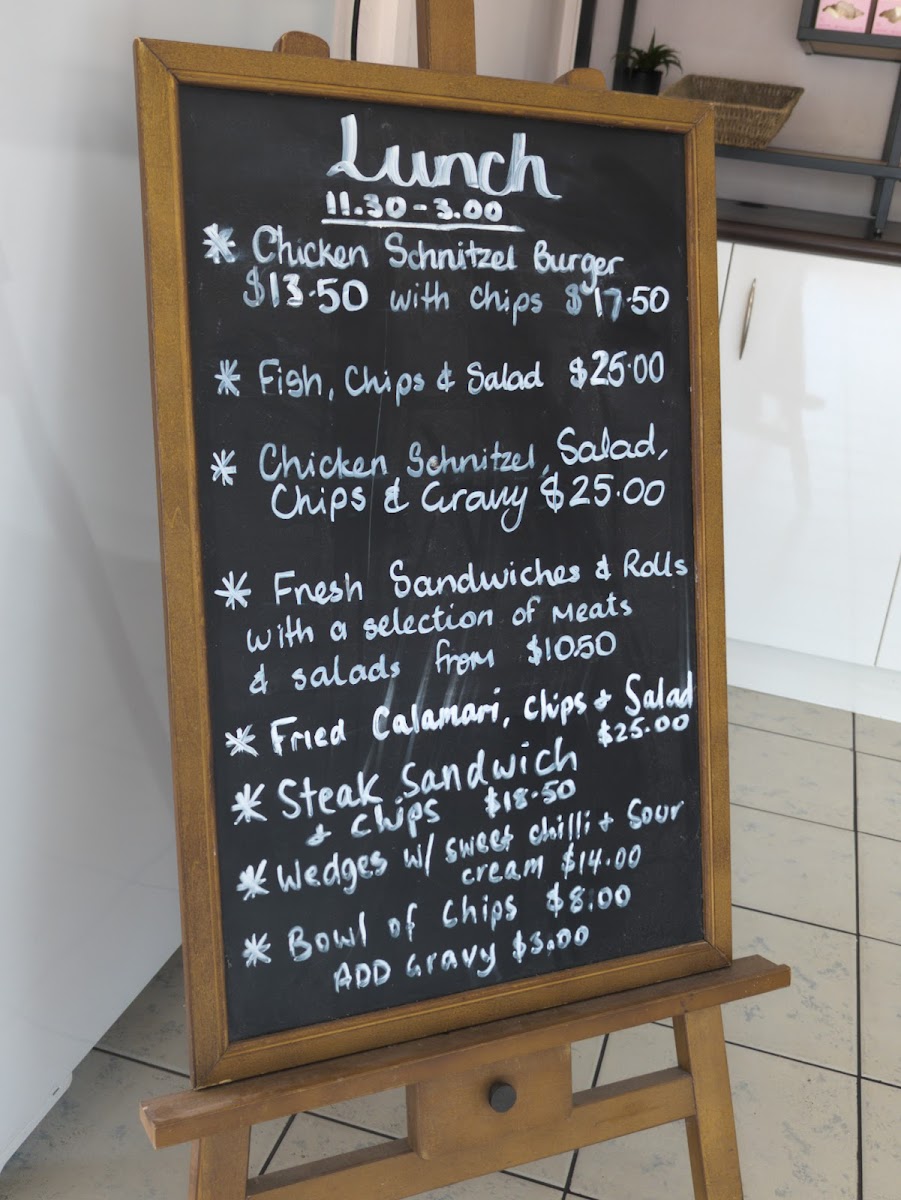 Lunch
11.30-3.00
* Chicken Schnitzel Burger
$13.50 with chips $17.50
* Fish, Chips & Salad $25.00
* Chicken Schnitzel, Salad,
Chips & Gravy $25.00
* Fresh Sandwiches & Rolls
with a selection of Meats
& salads from $10.50
* Fried Calamari, chips + Salad
$25.00
* Steak Sandwich
+ chips $18.50
* Wedges w/ sweet chilli + sour
cream $14.00
* Bowl of Chips $8.00
ADD Gravy $3.00